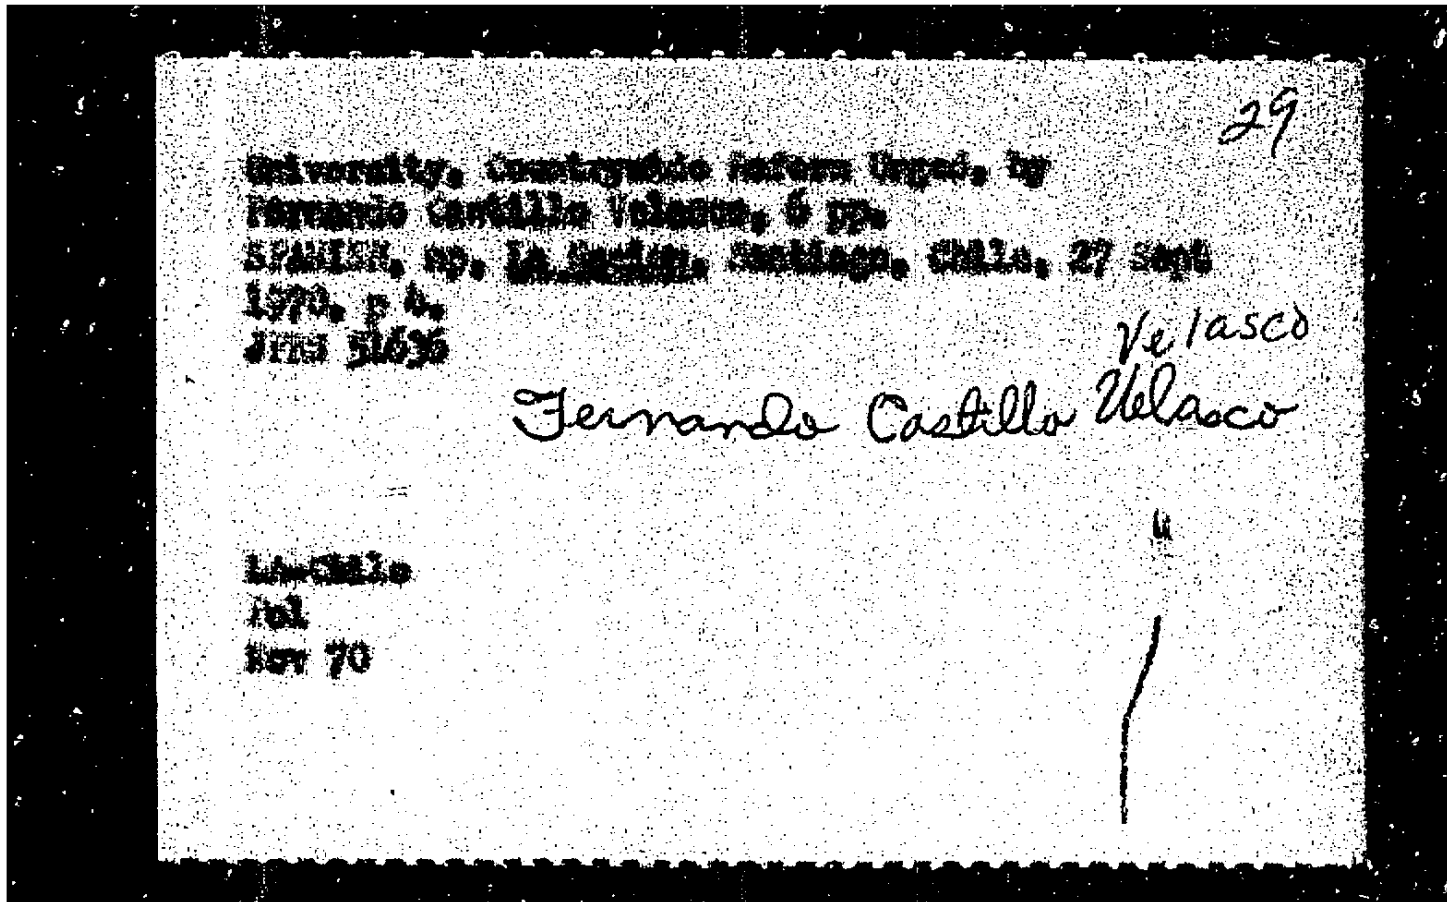 29
University, Countrywide Reform Urged, by
Fernando Castillo Velasco, 6 pp.
SPANISH, np, La Nacion, Santiago, Chile, 27 Sept
1970, p 4.
JPRS 51636
Velasco
Fernando Castillo Velasco
LA-Chile
Pol
Nov 70